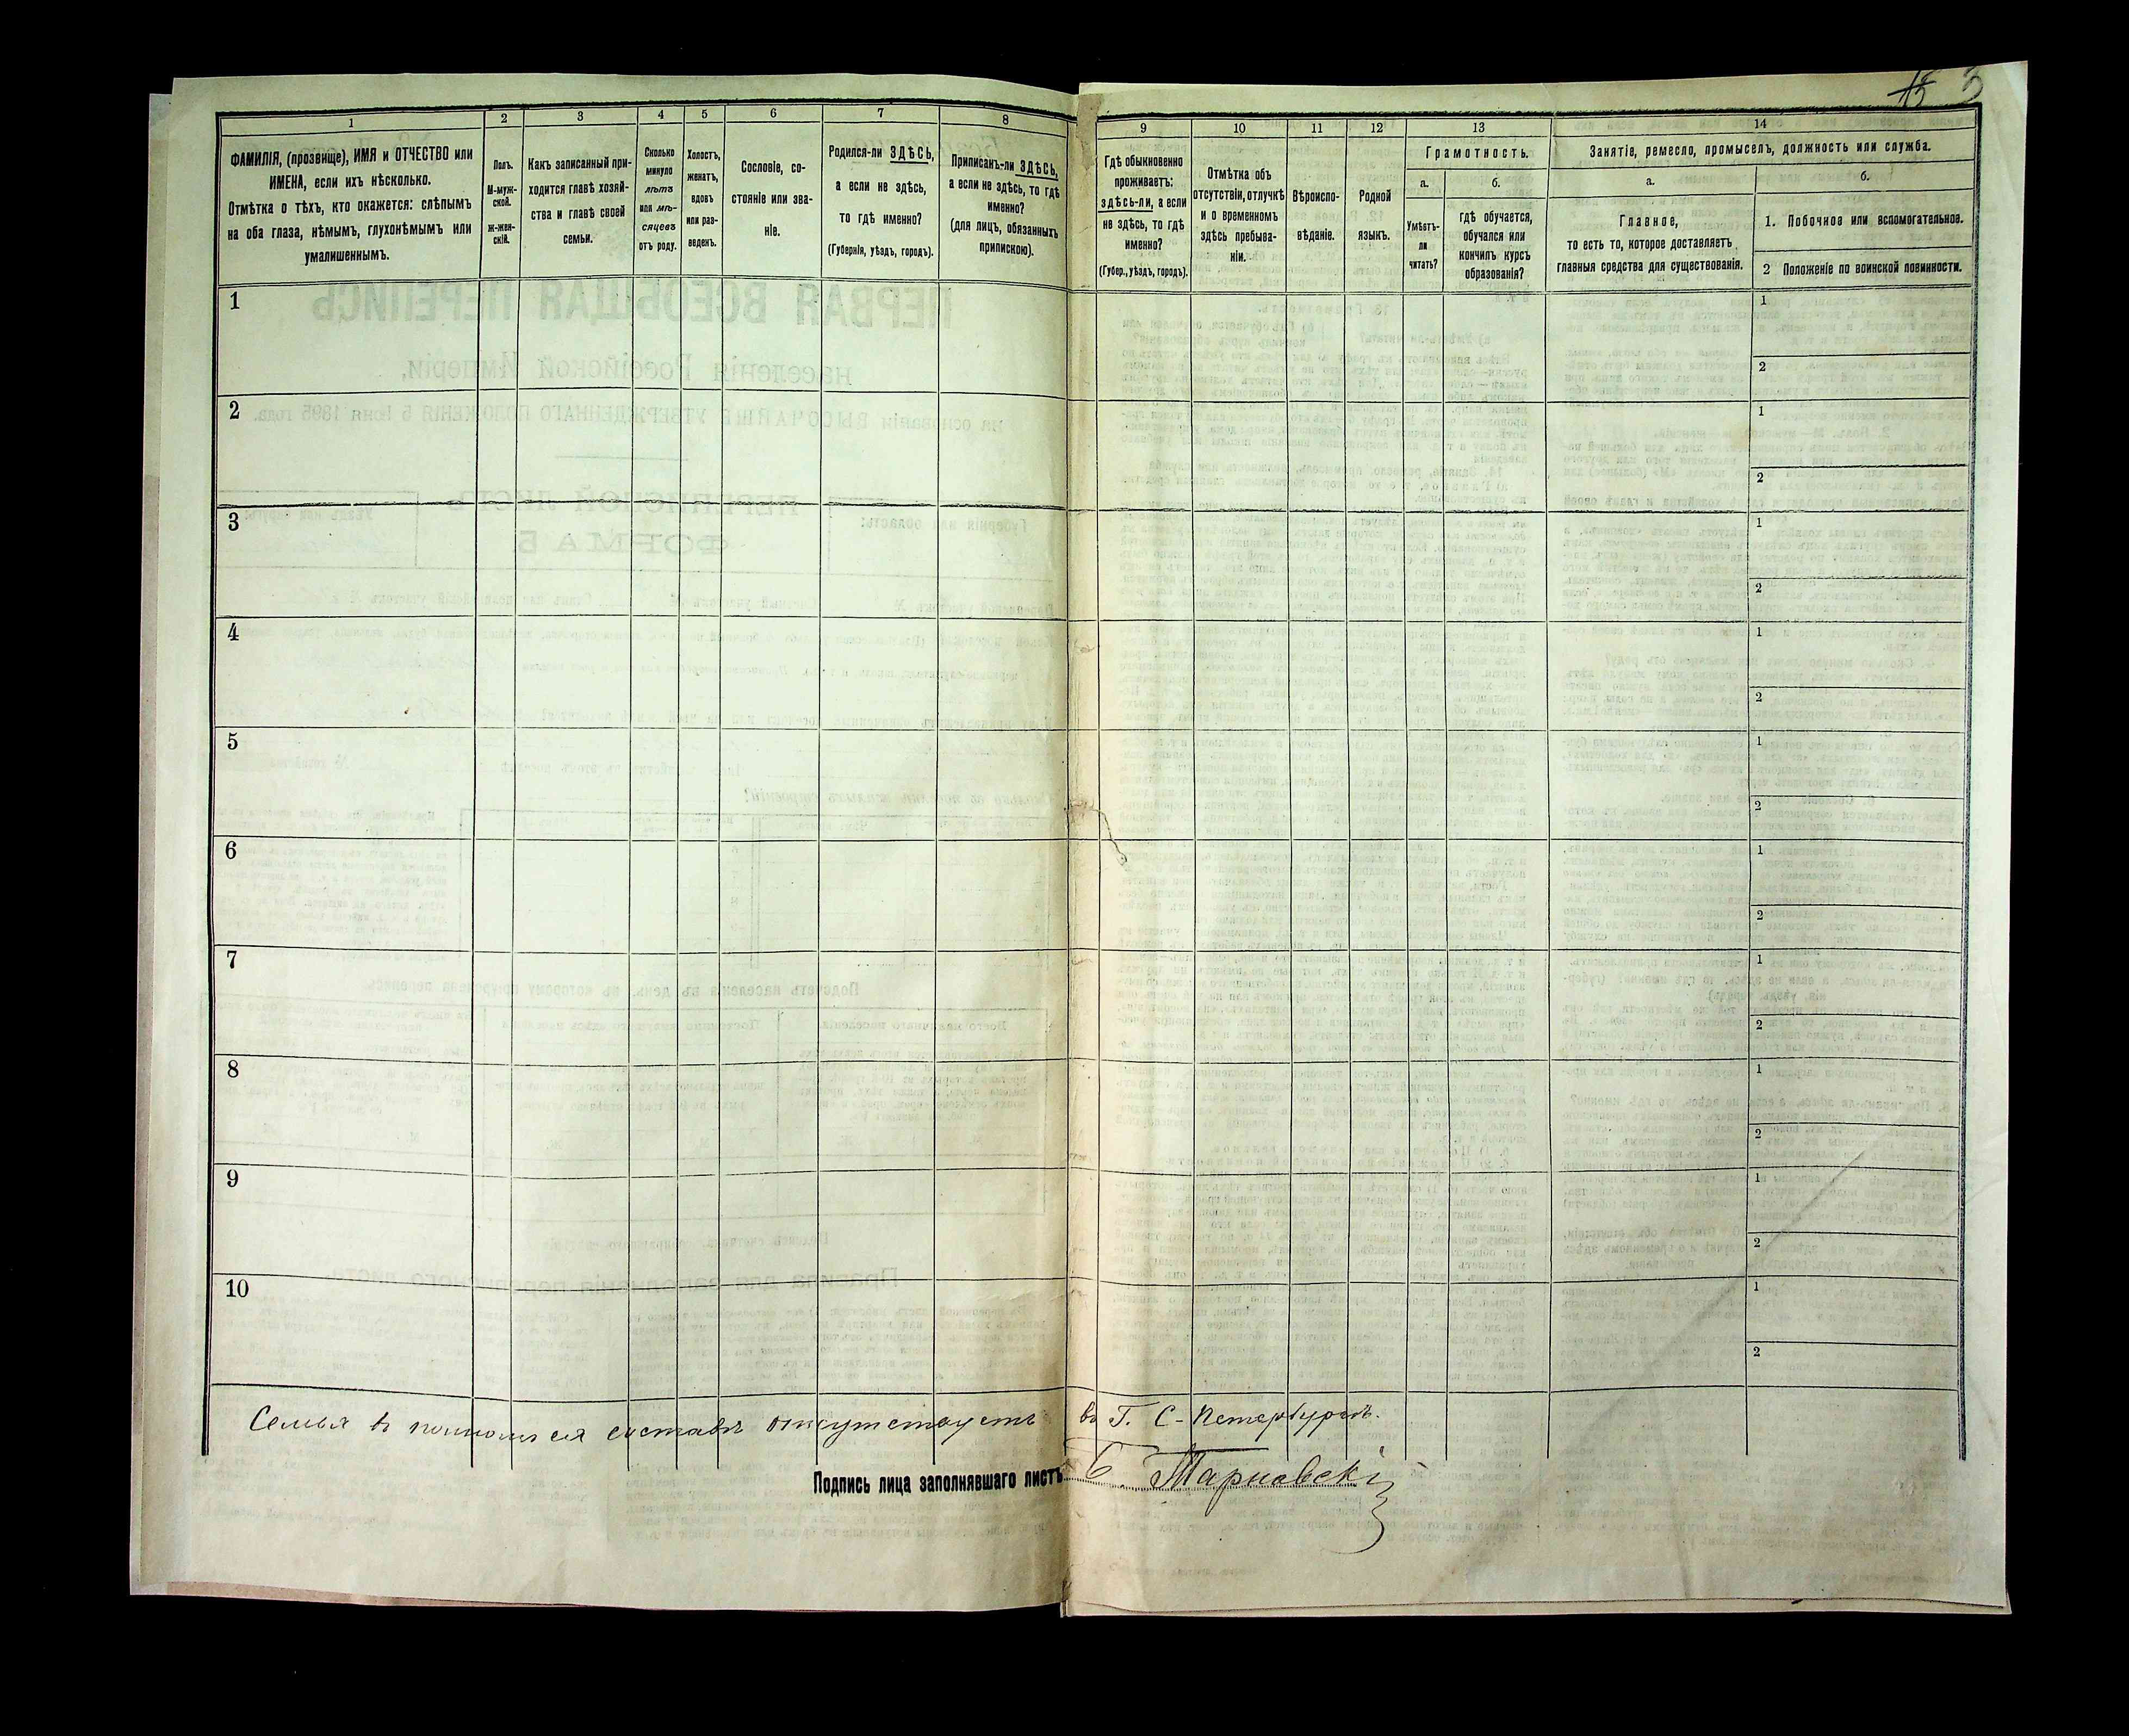 3
1
ФАМИЛІЯ, (прозвище), ИМЯ и ОТЧЕСТВО или
ИМЕНА, если ихъ нѣсколько.
Отмѣтка о тѣхъ, кто окажется: слѣпымъ
на оба глаза, нѣмымъ, глухонѣмымъ или
умалишеннымъ.
2
Полъ.
М-муж-
ской.
Ж-жен-
скій.
3
Какъ записанный при-
ходится главѣ хозяй-
ства и главѣ своей
семьи.
4
Сколько
минуло
лѣтъ
или мѣ-
сяцевъ
отъ роду.
5
Холостъ,
женатъ,
вдовъ
или раз-
веденъ.
6
Сословіе, со-
стояніе или зва-
ніе.
7
Родился-ли ЗДѢСЬ,
а если не здѣсь,
то гдѣ именно?
(Губернія, уѣздъ, городъ).
8
Приписанъ-ли ЗДѢСЬ,
а если не здѣсь, то гдѣ
именно?
(для лицъ, обязанныхъ
припискою).
9
Гдѣ обыкновенно
проживаетъ:
здѣсь-ли, а если
не здѣсь, то гдѣ
именно?
(Губер., уѣздъ, городъ).
10
Отмѣтка объ
отсутствіи, отлучкѣ
и о временномъ
здѣсь пребыва-
ніи.
11
Вѣроиспо-
вѣданіе.
12
Родной
языкъ.
13
Грамотность.
а.
Умѣетъ-
ли
читать?
б.
гдѣ обучается,
обучался или
кончилъ курсъ
образованія?
14
Занятіе, ремесло, промыселъ, должность или служба.
а.
Главное,
то есть то, которое доставляетъ
главныя средства для существованія.
б.
1. Побочное или вспомогательное.
2 Положеніе по воинской повинности.
1
1
2
2
1
2
3
1
2
4
1
2
5
1
2
6
1
2
7
1
2
8
1
2
9
1
2
10
1
2
Семья въ полномъ ея составѣ отсутствуетъ въ Г. С-Петербургѣ.
Подпись лица заполнявшаго листъ Тарновскій